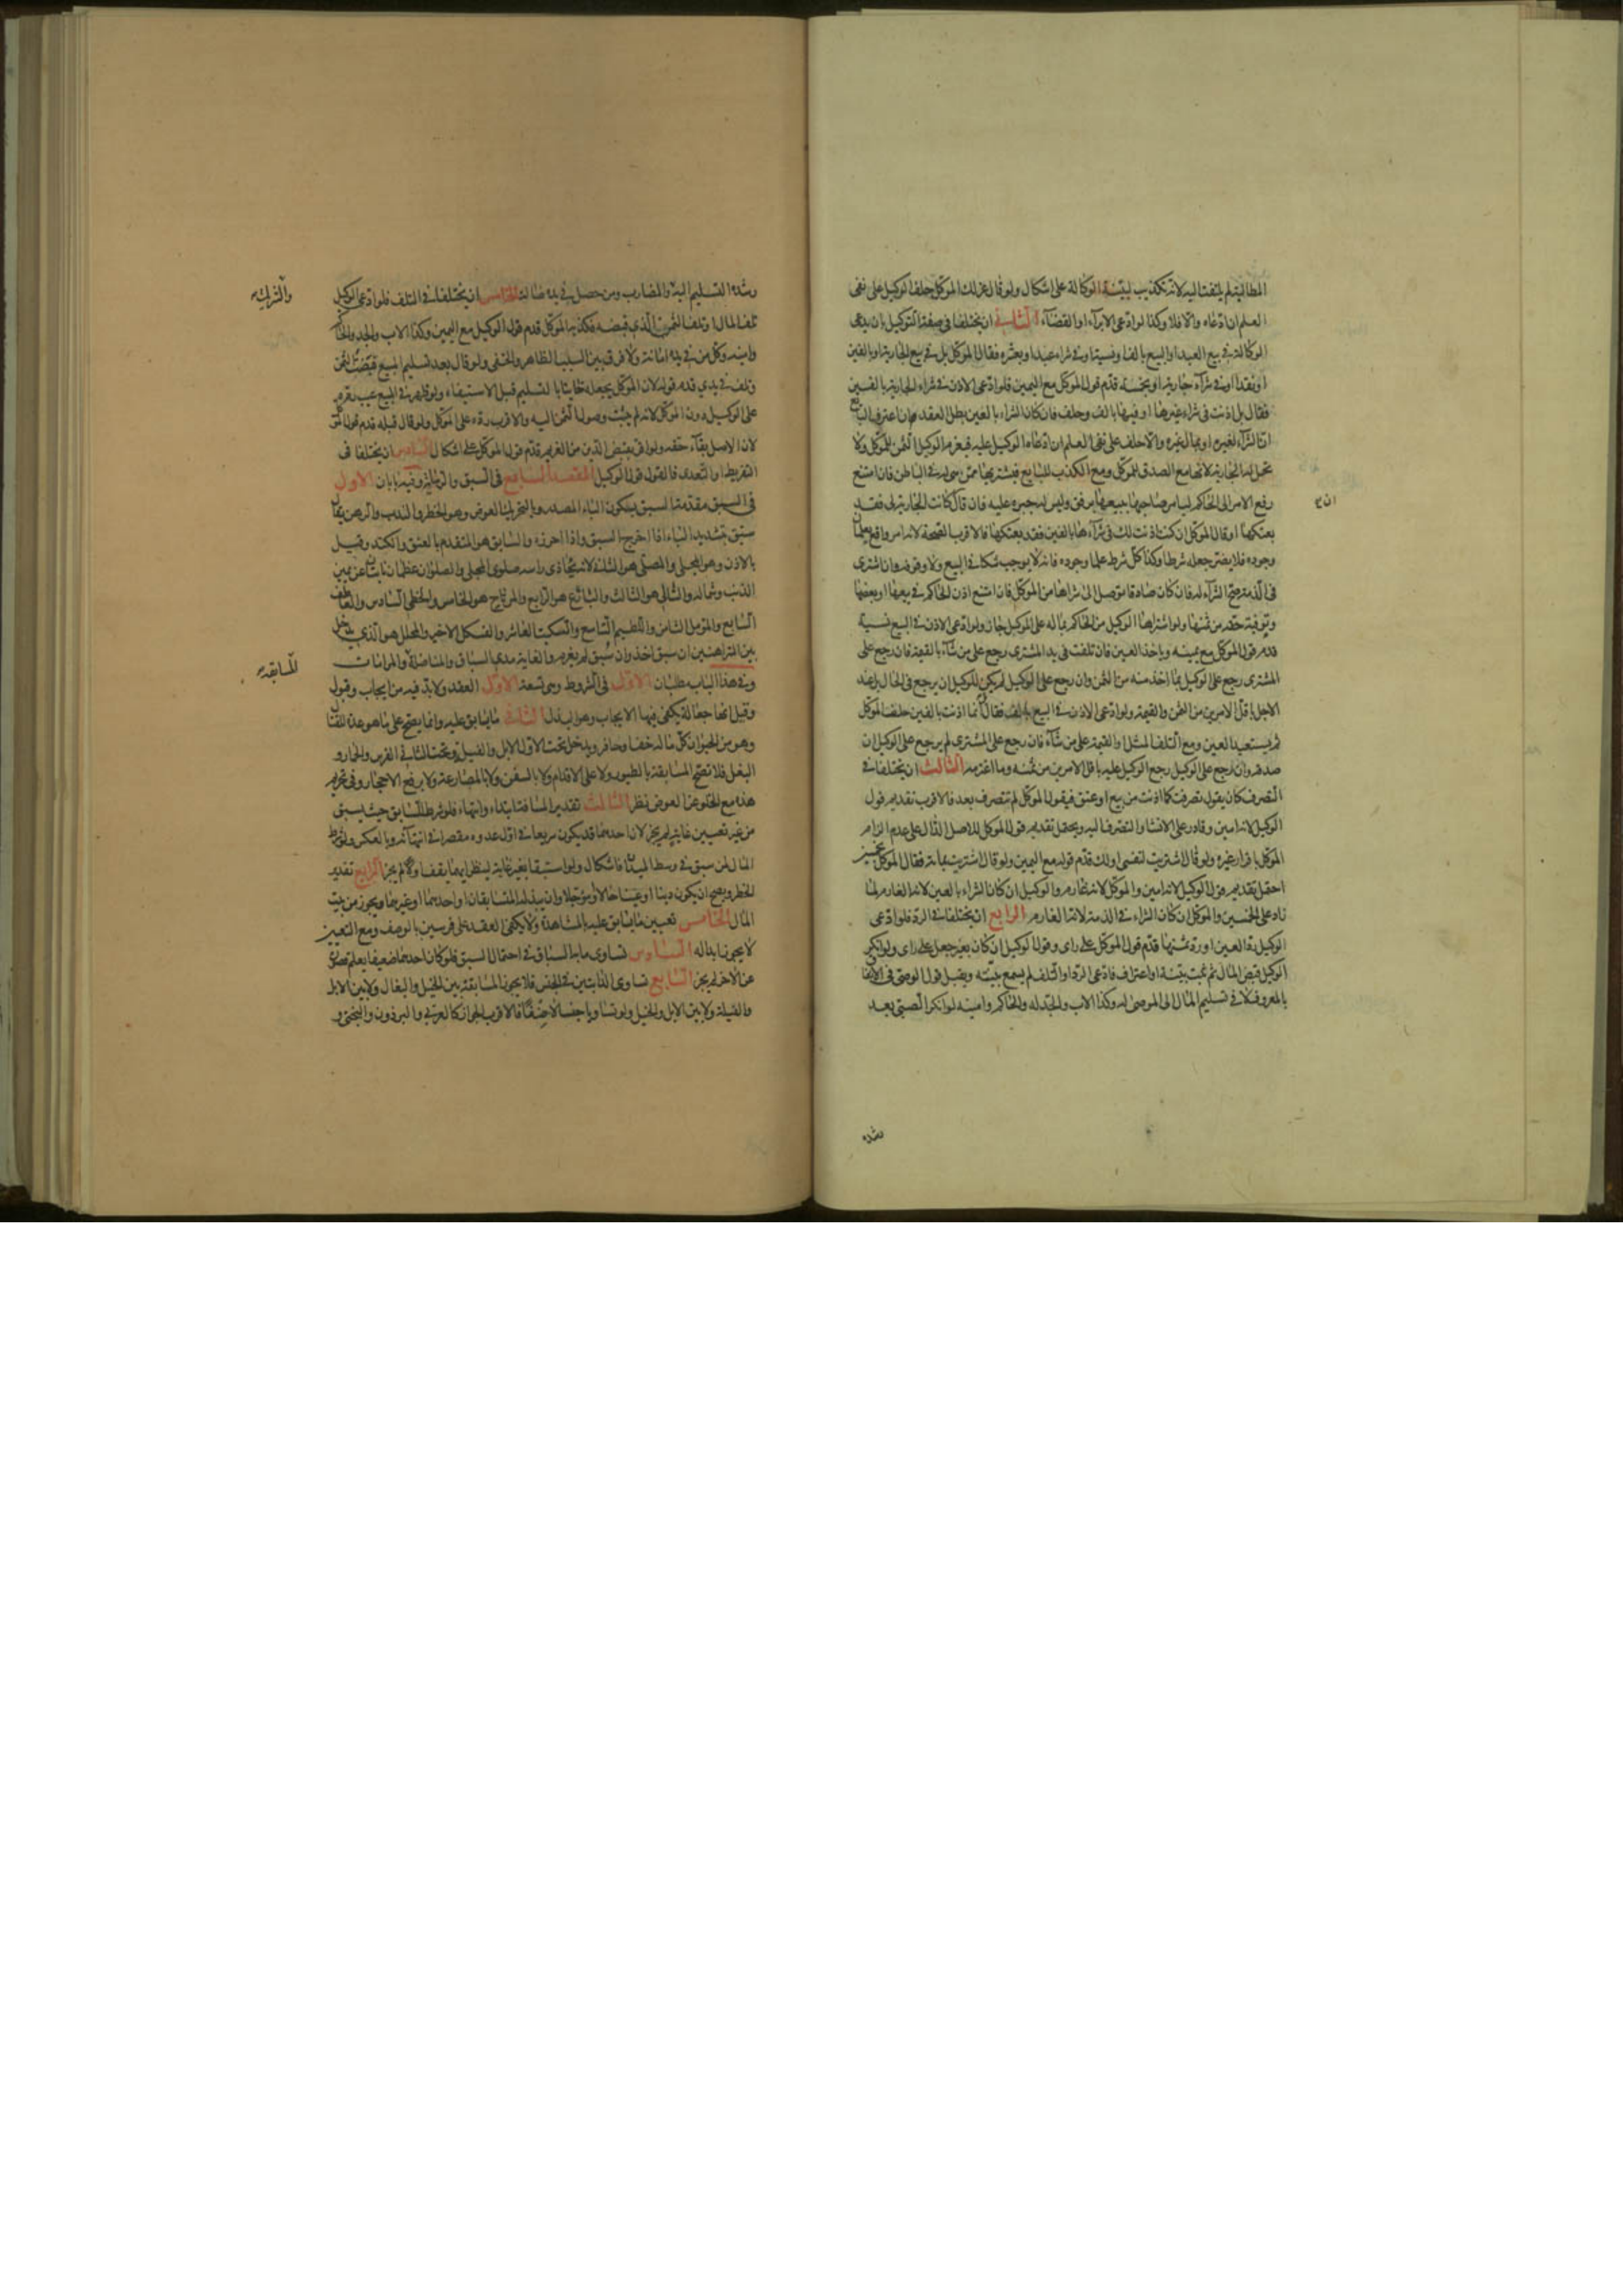 المطالبة لم يلتفت اليه لانه تكذيب لبينة الوكالة على اشكال ولو قال عزلك الموكل حلف الوكيل على نفى
العلم ان ادعاه والا فلا وكذا لو ادعى الابرآء او القضآء الثانى ان يختلفا فى صفة التوكيل بان يدعى
الوكالة فى بيع العبد او البيع بالف او نسية او فى شراء عبد او بعشره فقال الموكل بل فى بيع الجارية او بالفين
او نقدا او فى شرآء جارية او بخمسة قدم قول الموكل مع اليمين فلو ادعى الاذن فى شراء الجارية بالفين
فقال بل اذنت فى شراء غيرها او فيها بالف وحلف فان كان الشراء بالعين بطل العقد ان اعترف البايع
ان الشرآء لغيره او بمال غيره والا حلف على نفى العلم ان ادعاه الوكيل عليه فيغرم الوكيل الثمن للموكل ولا
تحل له الجارية لانها مع الصدق للموكل ومع الكذب للبايع فيشتريها ممن هى له فى الباطن فان امتنع
رفع الامر الى الحاكم ليامر صاحبها ببيعها برفق وليس له جبره عليه فان قال ان كانت الجارية لى فقد
بعتكها او قال الموكل ان كنت اذنت لك فى شرآءها بالفين فقد بعتكها فالاقرب الصحة لانه امر واقع يعلمان
وجوده فلا يضر جعله شرطا وكذا كل شرط علما وجوده فانه لا يوجب شكا فى البيع ولا وقوفه وان اشترى
فى الذمة صح الشرآء له فان كان صادقا توصل الى شراها من الموكل فان امتنع اذن الحاكم فى بيعها او بعضها
وتوفية حقه من ثمنها ولو اشتراها الوكيل من الحاكم بماله على الموكل جاز ولو ادعى الاذن فى البيع نسية
قدم قول الموكل مع يمينه وياخذ العين فان تلفت فى يد المشترى رجع على من شآء بالقيمة فان رجع على
المشترى رجع على الوكيل بما اخذ منه من الثمن وان رجع على الوكيل لم يكن للوكيل ان يرجع فى الحال بل عند
الاجل باقل الامرين من الثمن والقيمة ولو ادعى الاذن فى البيع بالف فقال انما اذنت بالفين حلف الموكل
ثم يستعيد العين ومع التلف المثل او القيمة على من شآء فان رجع على المشترى لم يرجع على الوكيل ان
صدقه وان رجع على الوكيل رجع الوكيل عليه باقل الامرين من ثمنه وما اغترمه الثالث ان يختلفا فى
التصرف كان يقول تصرفت كما اذنت من بيع او عتق فيقول الموكل لم تتصرف بعد فالاقرب تقديم قول
الوكيل لانه امين وقادر على الانشا والتصرف اليه ويحتمل تقديم قول الموكل للاصل الدال على عدم الزام
الموكل باقرار غيره ولو قال اشتريت لنفسى او لك قدم قوله مع اليمين ولو قال اشتريت بمائة فقال الموكل بخمسين
احتمل تقديم قول الوكيل لانه امين والموكل لانه غارم والوكيل ان كان الشراء بالعين لانه الغارم لما
زاد على الخمسين والموكل ان كان الشراء فى الذمة لانه الغارم الرابع ان يختلفا فى الرد فلو ادعى
الوكيل رد العين او رد ثمنها قدم قول الموكل على راى وقول الوكيل ان كان بغير جعل على راى ولو انكر
الوكيل قبض المال ثم ثبت ببينة او اعتراف فادعى الرد او التلف لم يسمع بينته ويقبل قول الوصى فى الانفاق
بالمعروف لا فى تسليم المال الى الموصى له وكذا الاب والجد له والحاكم وامينه لو انكر الصبى بعد
رشده
رشده التسليم اليه والمضارب ومن حصل فى يده ضالة الخامس ان يختلفا فى التلف فلو ادعى الوكيل
تلف المال او تلف الثمن الذى قبضه فكذبه الموكل قدم قول الوكيل مع اليمين وكذا الاب والجد والحاكم
وامينه وكل من فى يده امانة ولا فرق بين السبب الظاهر والخفى ولو قال بعد تسليم المبيع قبضت الثمن
وتلف فى يدى قدم قوله لان الموكل يجعله خاينا بالتسليم قبل الاستيفاء ولو ظهر فى المبيع عيب رده
على الوكيل دون الموكل لانه لم يثبت وصول الثمن اليه والاقرب رده على الموكل ولو قال قبله قدم قول الموكل
لان الاصل بقآء حقه ولو اقر بقبض الدين من الغريم قدم قول الموكل على اشكال السادس ان يختلفا فى
التفريط او التعدى فالقول قول الوكيل المقصد السابع فى السبق والرماية وفيه بابان الاول
فى السبق مقدمة السبق بسكون الباء المصدر وبالتحريك العوض وهو الخطر والندب والرهن يقال
سبق بتشديد الباء اذا اخرج السبق واذا احرزه والسابق هو المتقدم بالعنق والكتد وقيل
بالاذن وهو المجلى والمصلى هو الثانى لانه يحاذى راسه صلوى المجلى والصلوان عظمان نابتان عن يمين
الذنب وشماله والتالى هو الثالث والبارع هو الرابع والمرتاح هو الخامس والحظى السادس والعاطف
السابع والمؤمل الثامن واللطيم التاسع والسكيت العاشر والفسكل الاخير والمحلل هو الذى يدخل
بين المتراهنين ان سبق اخذ وان سُبق لم يغرم والغاية مدى السباق والمناضلة والمراماة
وفى هذا الباب مطلبان الاول فى الشروط وهى تسعة الاول العقد ولابد فيه من ايجاب وقبول
وقيل انها جعالة يكفى فيها الايجاب وهو البذل الثانى ما يسابق عليه وانما يصح على ما هو عدة للقتال
وهو من الحيوان كل ماله خف او حافر ويدخل تحت الاول الابل والفيل وتحت الثانى الفرس والحمار و
البغل فلا تصح المسابقة بالطيور ولا على الاقدام ولا بالسفن ولا بالمصارعة ولا برفع الاحجار وفى تحريم
هذه مع الخلو عن العوض نظر الثالث تقدير المسافة ابتداء وانتهاء فلو شرط للسابق حيث يسبق
من غير تعيين غاية لم يجز لان احدهما قد يكون سريعا فى اول عدوه مقصرا فى انتهائه وبالعكس ولو شرط
المال لمن سبق فى وسط الميدان فاشكال ولو استبقا بغير غاية لينظر ايهما يقف اولا لم يجز الرابع تقدير
الخطر ويصح ان يكون دينا او عينا حالا او مؤجلا وان يبذله المتسابقان او احدهما او غيرهما ويجوز من بيت
المال الخامس تعيين ما يسابق عليه بالمشاهدة ولا يكفى العقد على فرسين بالوصف ومع التعيين
لا يجوز ابداله السادس تساوى ما به السباق فى احتمال السبق فلو كان احدهما ضعيفا يعلم قصوره
عن الاخر لم يجز السابع تساوى الدابتين فى الجنس فلا يجوز المسابقة بين الخيل والبغال ولا بين الابل
والفيلة ولا بين الابل والخيل ولو تساويا جنسا لا صنفا فالاقرب الجواز كالعربى والبرذون والبختى و